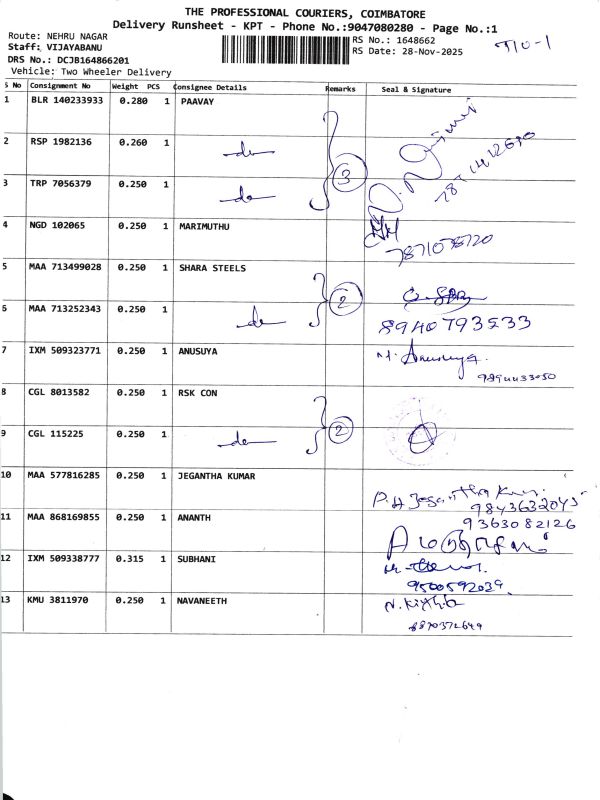 THE PROFESSIONAL COURIERS, COIMBATORE
Delivery Runsheet - KPT - Phone No.:9047080280 - Page No.:1
Route: NEHRU NAGAR
Staff: VIJAYABANU
DRS No.: DCJB164866201
Vehicle: Two Wheeler Delivery
RS No.: 1648662
RS Date: 28-Nov-2025
S No Consignment No Weight PCS Consignee Details Remarks Seal & Signature
1 BLR 140233933 0.280 1 PAAVAY
2 RSP 1982136 0.260 1 do
3 TRP 7056379 0.250 1 do 3
4 NGD 102065 0.250 1 MARIMUTHU
5 MAA 713499028 0.250 1 SHARA STEELS
6 MAA 713252343 0.250 1 do 2 8940793533
7 IXM 509323771 0.250 1 ANUSUYA Anusuya.
8 CGL 8013582 0.250 1 RSK CON
9 CGL 115225 0.250 1 do 2
10 MAA 577816285 0.250 1 JEGANTHA KUMAR
11 MAA 868169855 0.250 1 ANANTH 9363082126
12 IXM 509338777 0.315 1 SUBHANI 9500592039
13 KMU 3811970 0.250 1 NAVANEETH